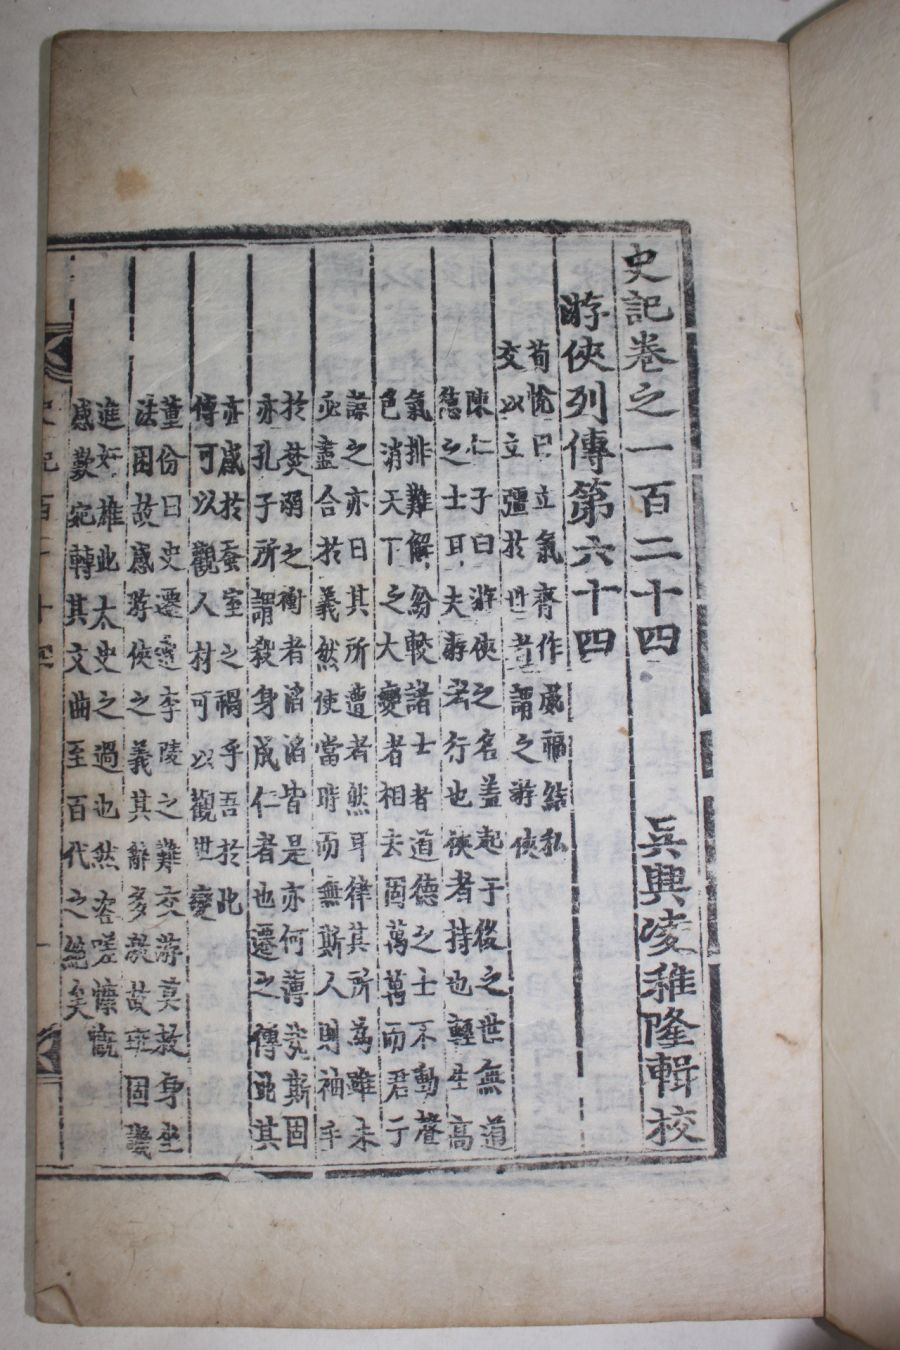 史記卷之一百二十四 吳興凌稚隆輯校
游俠列傳第六十四
荀悅曰立氣齊作威福結私
交以立彊於世者謂之游俠
陳仁子曰游俠之名蓋起于後之世無道
德之士耳夫游者行也俠者持也輕生高
氣排難解紛較諸士者道德之士不動聲
色消天下之大變者相去固萬萬而君子
諒之亦曰其所遭者然耳律其所為雖未
必盡合於義然使當時而無斯人則袖手
於焚溺之衝者滔滔皆是亦何薄於斯固
亦孔子所謂殺身成仁者也遷之傳此其
亦感於蠶室之禍乎吾於此
傳可以觀人材可以觀世變
董份曰史遷遭李陵之難交游莫救身坐
法困故感游俠之義其辭多激故班固譏
進奸雄此太史之過也然咨嗟慷慨
感歎宛轉其文曲至百代之絕矣